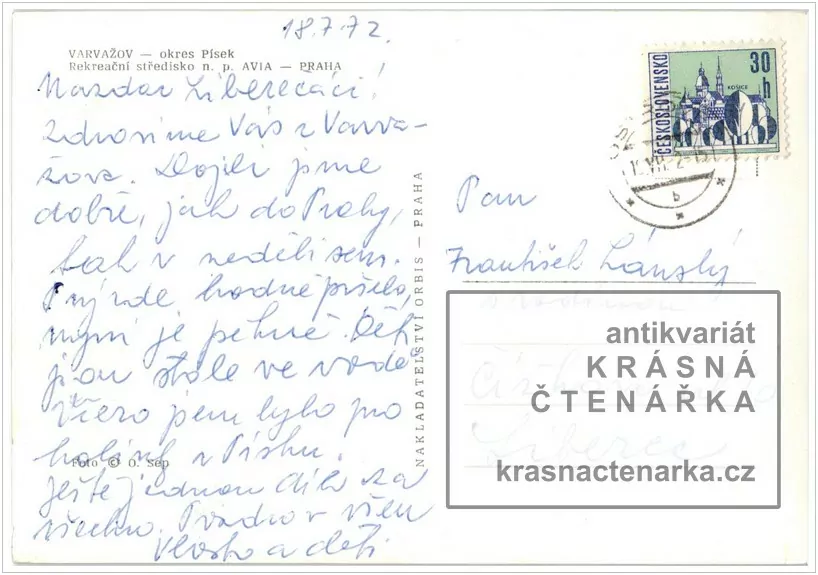 18.7.72.
VARVAŽOV — okres Písek
Rekreační středisko n. p. AVIA — PRAHA
Nazdar Liberečáci!
Zdravíme Vás z Varva-
žova. Dojeli jsme
dobře, jak do Prahy,
tak v neděli sem.
Prý zde hodně pršelo,
nyní je pěkně. Děti
jsou stále ve vodě.
Včera jsem byla pro
holinky v Písku.
Ještě jednou dík za
všechno. Pozdrav všem
Vlasta a děti
Foto © O. Sep
NAKLADATELSTVÍ ORBIS — PRAHA
ČESKOSLOVENSKO
30
h
KOŠICE
b
Pan
František Lánský
s rodinou
Liberec
antikvariát
KRÁSNÁ
ČTENÁŘKA
krasnactenarka.cz